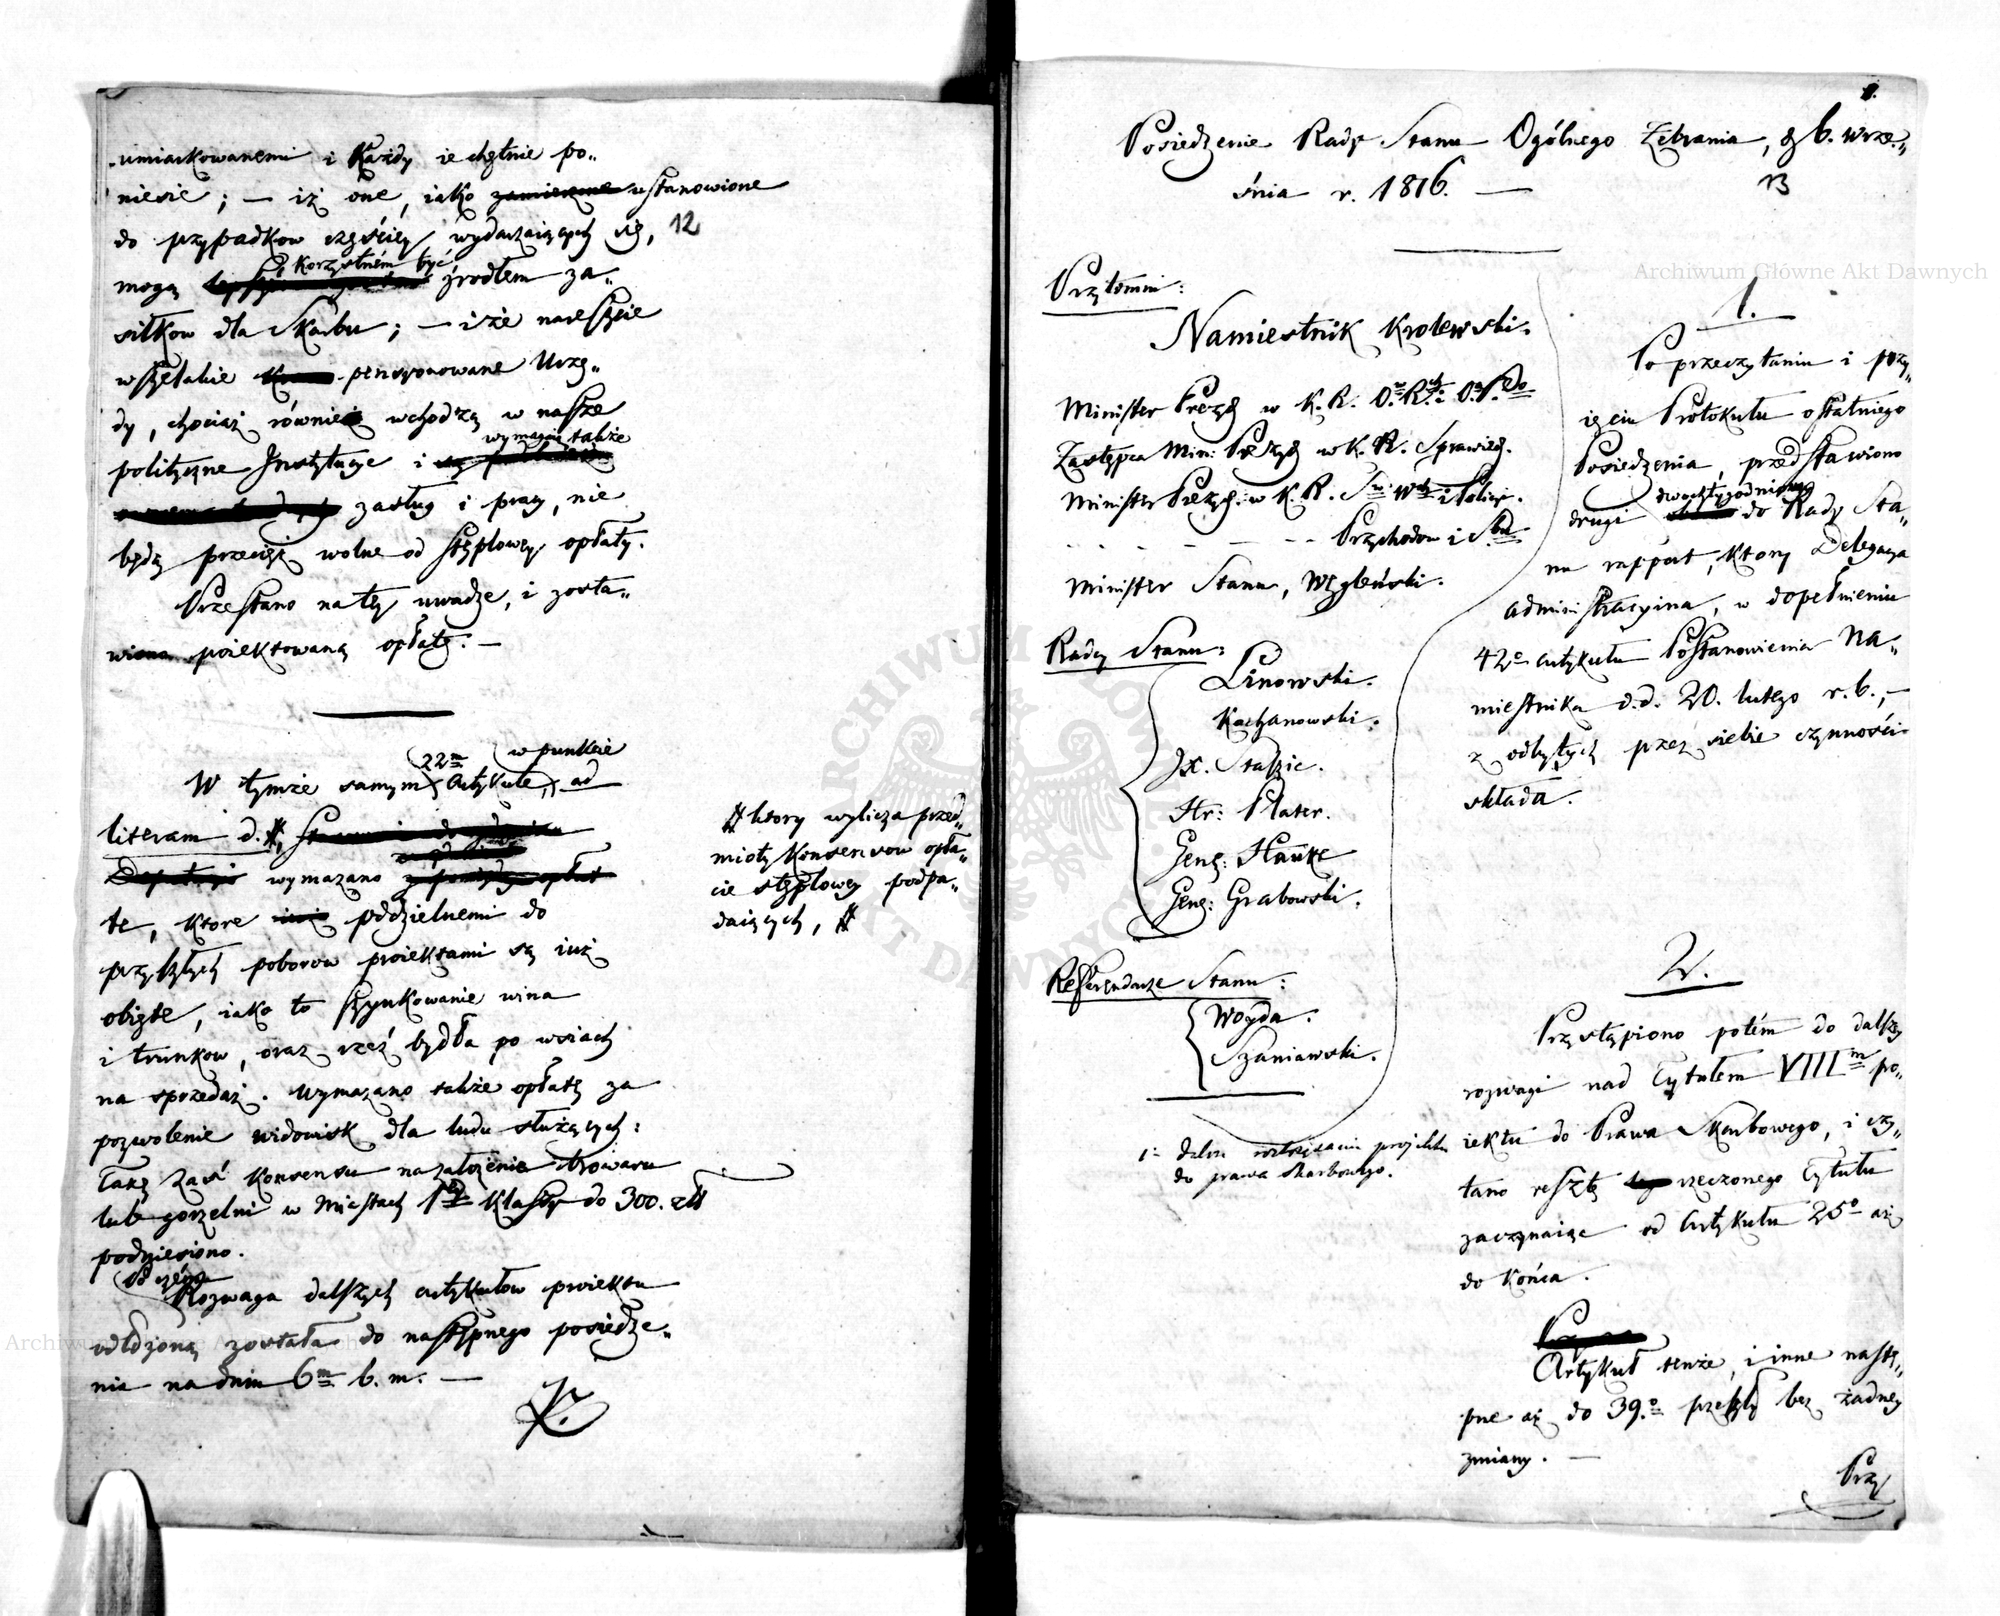 umiarkowanemi i każdy ie chętnie po„
niesie; — iż one, iako ustanowione
do przypadkow częściey wydarzaiących się, 12
korzystném być
mogą źrodłem za„
siłkow dla Skarbu; — i że nareszcie
wszelakie pensyonowane Urzę„
dy, chociaż również wchodzą w nasze
wymagaią także
polityczne Instytucye i
zasług i pracy, nie
będą przecięż wolne od stęplowey opłaty.
Przestano na tey uwadze, i zosta„
wiono proiektowaną opłatę. —
22m w punkcie
W tymże samym Artykule, ad
literam d. #,
wymazano
te, ktore oddzielnemi do
przyszłych poborow proiektami są iuż
obięte, iako to szynkowanie wina
i trunkow, oraz rzeź bydła po wsiach
na sprzedaż. Wymazano także opłatę za
pozwolenie widowisk dla ludu służących:
Taxę zaś konsensu na założenie browaru
lub gorzelni w Miastach 1ey klassy do 300. zł
podniesiono.
Po czém
Rozwaga dalszych artykułow proiektu
odłożoną została do następnego posiedze„
nia na dniu 6m b. m. —
# ktory wylicza przed„
mioty konsensow opła„
cie stęplowey podpa„
daiących, #
Posiedzenie Rady Stanu Ogólnego Zebrania, d. 6. Wrze„
śnia r. 1816. — 13
Przytomni:
Namiestnik Krolewski.
Minister Prezyd. w K. R.
Zastępca Min: Prezyd. w K. R. Sprawied.
Minister Prezyd. w K. R. S. W. i Policyi.
- - - - - Przychodow i Sbu
Minister Stanu, Węgleński.
Radcy Stanu:
Linowski.
Kochanowski.
Jx. Staszic.
Hr: Plater.
Gene: Hauke
Gene: Grabowski.
Referendarze Stanu:
Woyda.
Szaniawski.
1. Dalsze roztrząsanie projektu
do prawa skarbowego.
1.
Po przeczytaniu i przy„
ięciu Protokułu ostatniego
Posiedzenia, przedstawiono
dwochtygodniowy
drugi do Rady Sta„
nu rapport, ktory Delegacya
administracyina, w dopełnieniu
42o artykułu Postanowienia Na„
miestnika d.d. 20. lutego r. b., —
z odbytych przez siebie czynności
składa.
2.
Przystąpiono potém do dalszey
rozwagi nad Tytułem VIIIm po„
iektu do Prawa Skarbowego, i czy„
tano resztę rzeczonego Tytułu
zaczynaiąc od Artykułu 25o aż
do końca.
Artykuł tenże, i inne nastę„
pne aż do 39.o przeszły bez żadney
zmiany. —
Przy
Archiwum Główne Akt Dawnych